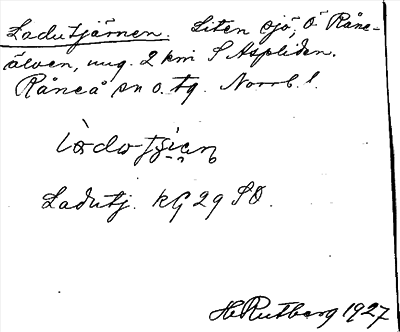 Ladutjärnen. Liten sjö, Ö Råne-
älven, ung. 2 km S Aspliden.
Råneå sn o. tg. Norrb. l.
Ladutj. KG 29 SO.
H. Rutberg 1927